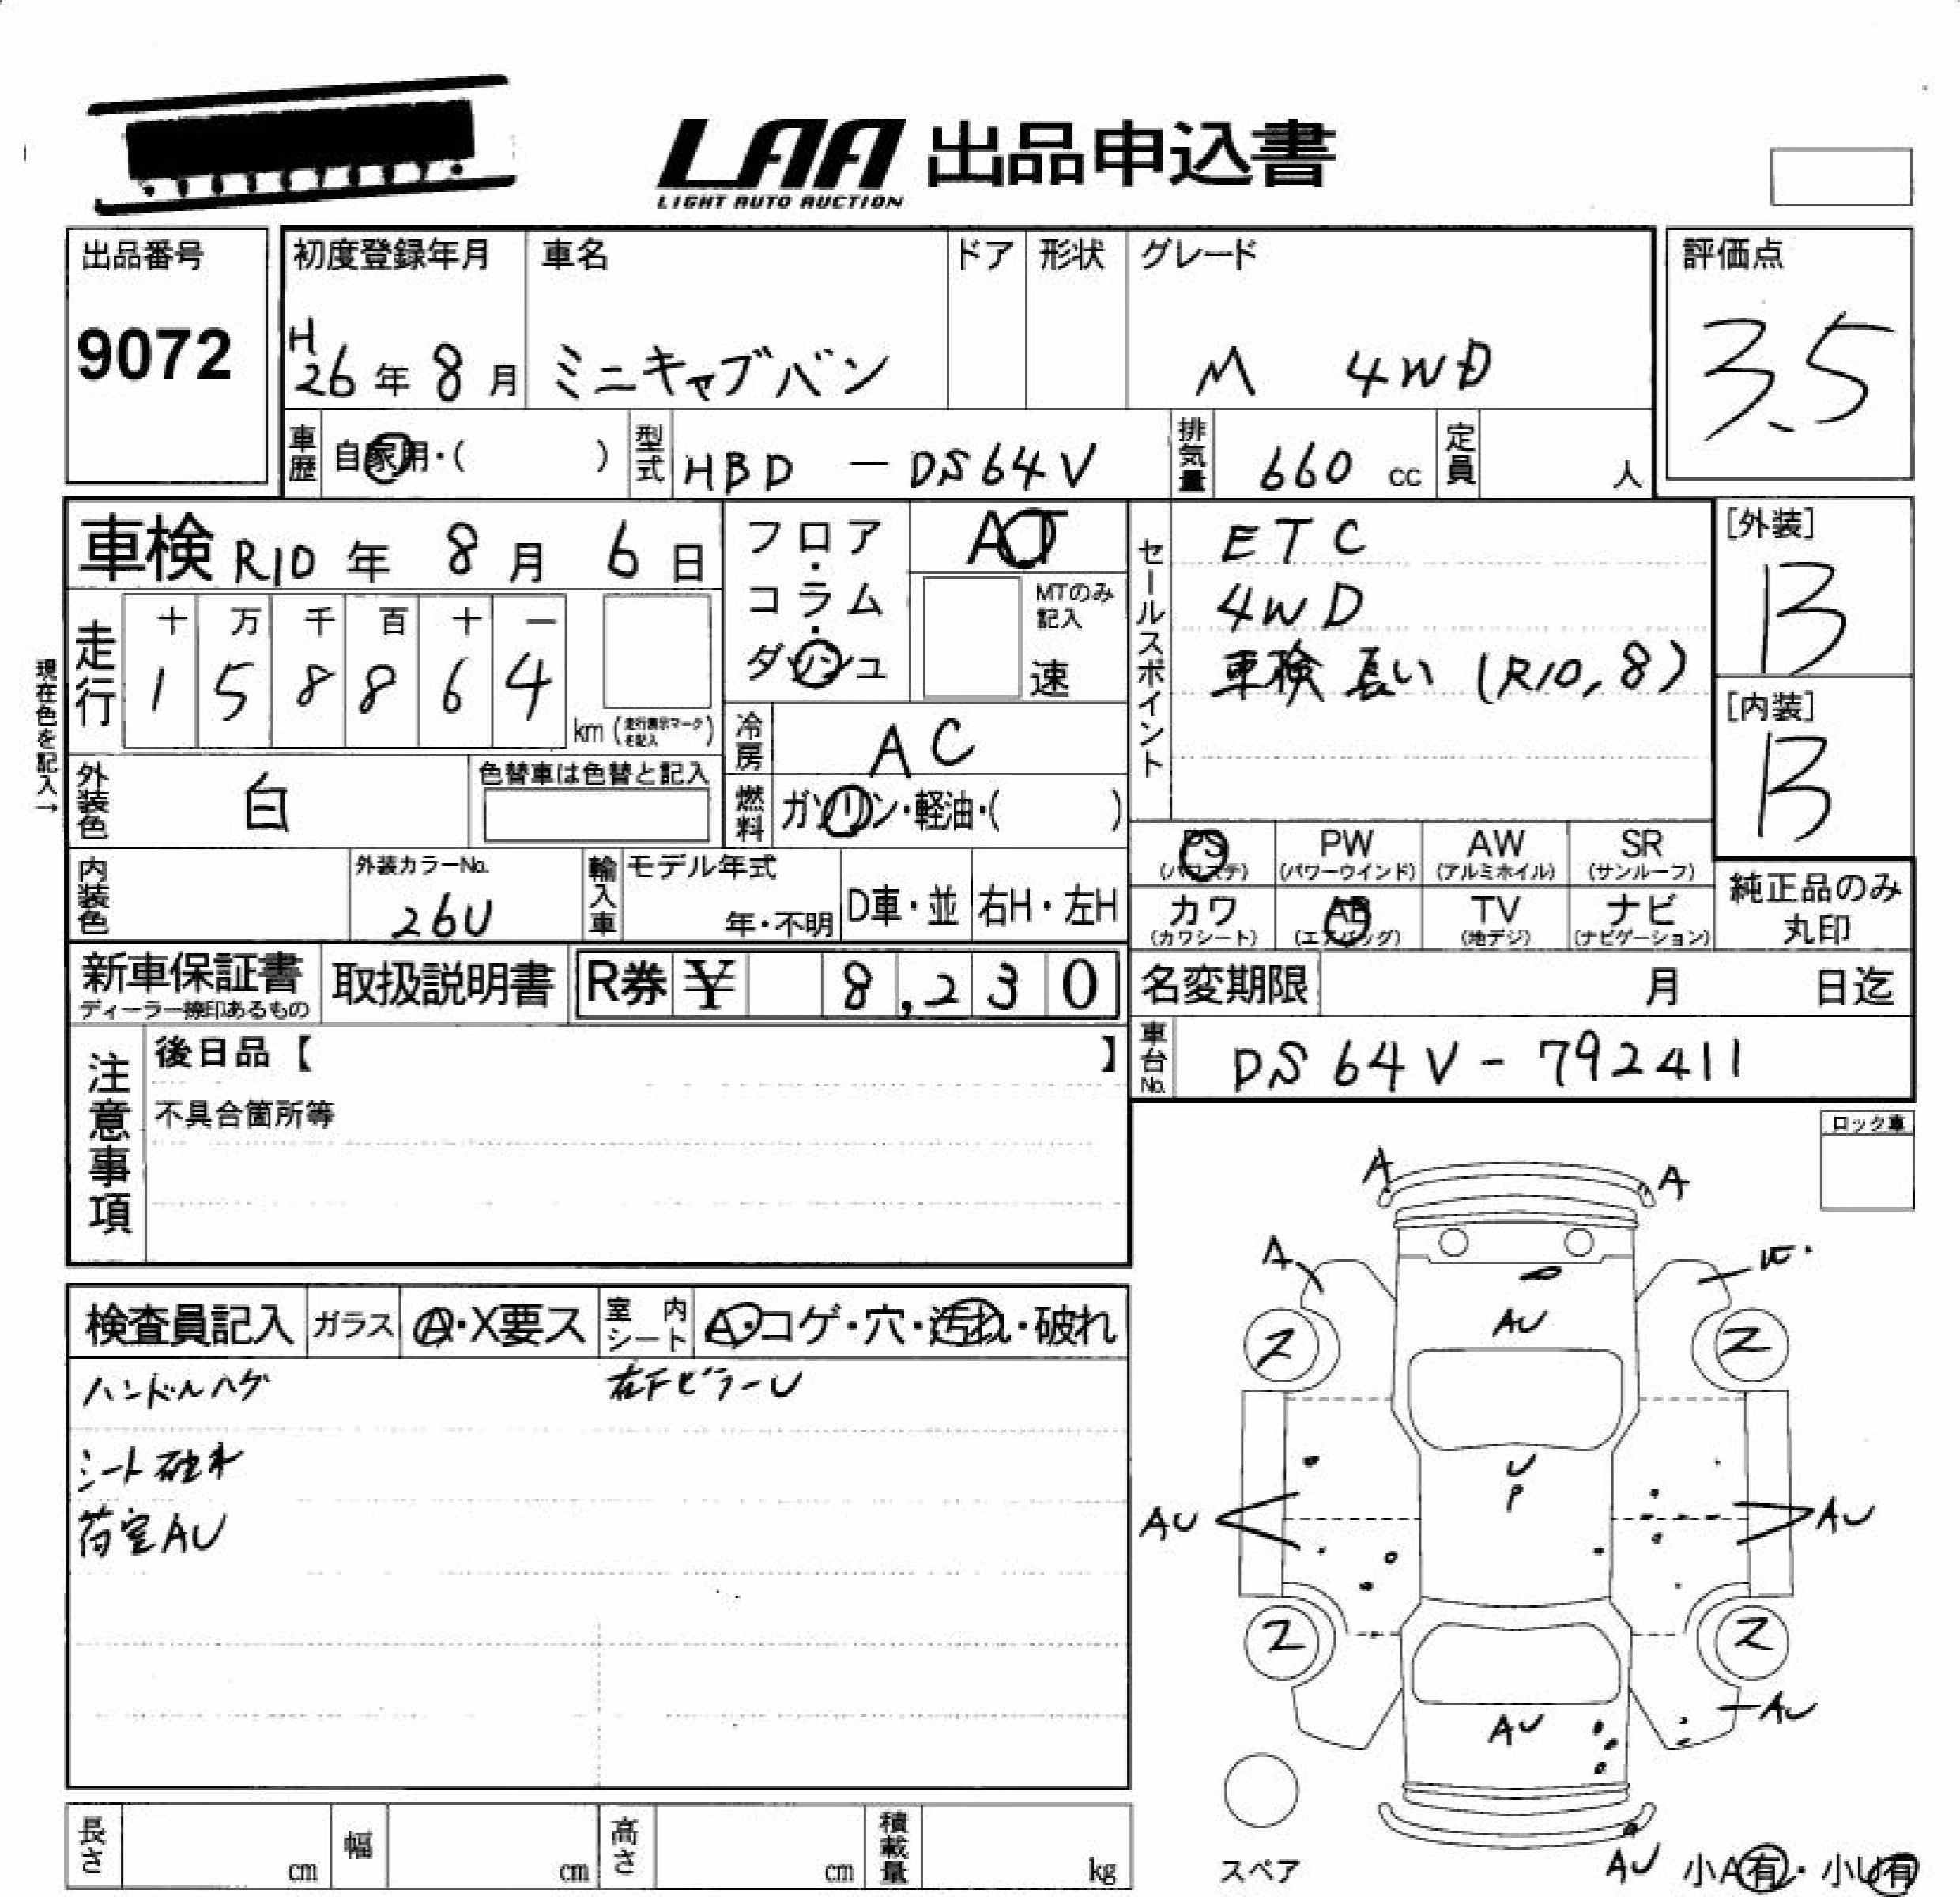 LAA 出品申込書
LIGHT AUTO AUCTION
出品番号
9072
初度登録年月
H26年 8月
車名
ミニキャブバン
ドア
形状
グレード
M 4WD
評価点
3.5
車歴
自家用・( )
型式
HBD - DS64V
排気量
660 cc
定員
人
車検 R10年 8月 6日
走行
十 万 千 百 十 一
1 5 8 8 6 4
km (走行表示マークを記入)
現在色を記入→
フロア・コラム・ダッシュ
AT
MTのみ記入
速
セールスポイント
ETC
4WD
車検長い (R10,8)
[外装]
B
[内装]
B
冷房
AC
外装色
白
色替車は色替と記入
燃料
ガソリン・軽油・( )
内装色
外装カラーNo.
26U
輸入車
モデル年式
年・不明
D車・並
右H・左H
PS
(パワステ)
PW
(パワーウインド)
AW
(アルミホイル)
SR
(サンルーフ)
カワ
(カワシート)
AB
(エアバッグ)
TV
(地デジ)
ナビ
(ナビゲーション)
純正品のみ
丸印
新車保証書
ディーラー捺印あるもの
取扱説明書
R券 ¥ 8,230
名変期限
月 日迄
車台No.
DS64V-792411
注意事項
後日品【 】
不具合箇所等
ロック車
検査員記入
ガラス
A・X要ス
室内シート
A・コゲ・穴・汚れ・破れ
ハンドルハゲ
右FピラーU
シート破れ
荷室AU
A
A
A
AU
2
2
U
P
AU
AU
2
2
AU
AU
AU
スペア
小A有・小U有
長さ
cm
幅
cm
高さ
cm
積載量
kg